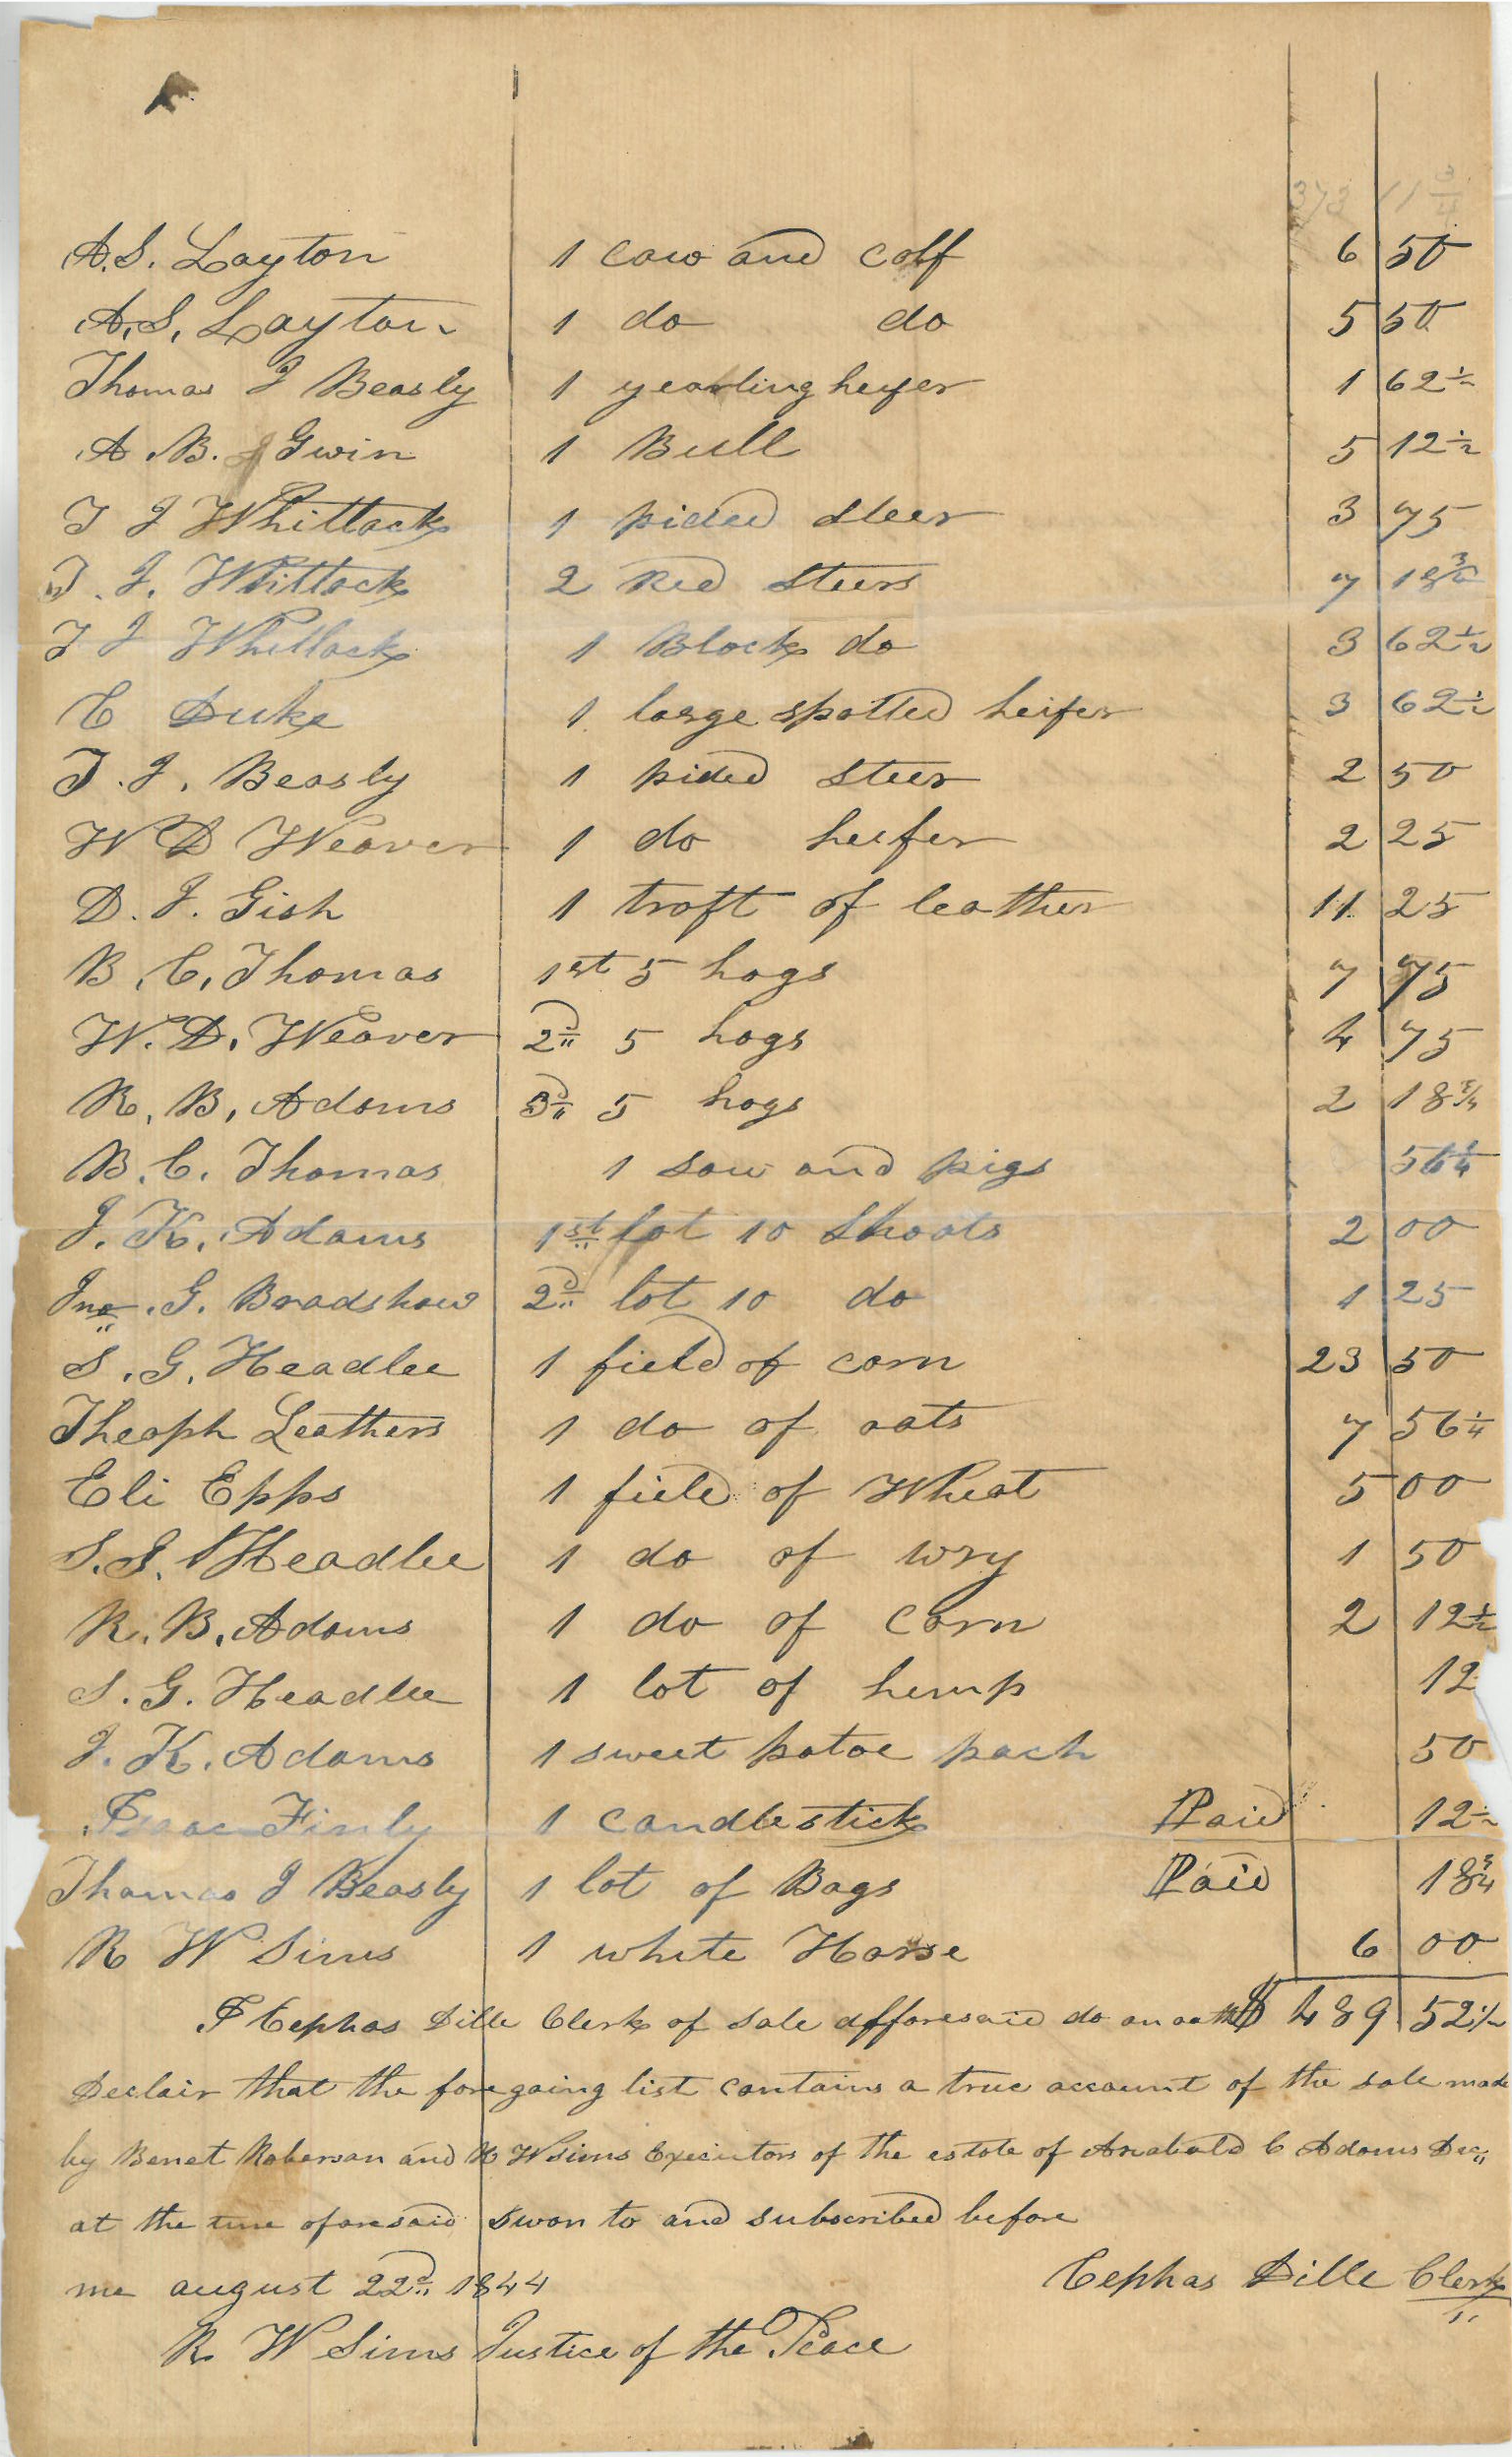 373 11 3/4
A. S. Layton 1 cow and calf 6 50
A. S. Layton 1 do do 5 50
Thomas J Beasly 1 yearling heifer 1 62 1/2
A. B. Gwin 1 Bull 5 12 1/2
T J Whitlock 1 pided steer 3 75
T. J. Whitlock 2 Red steers 7 18 3/4
T J Whitlock 1 Black do 3 62 1/2
C Duke 1 large spotted heifer 3 62 1/2
T. J. Beasly 1 pided steer 2 50
W D Weaver 1 do heifer 2 25
D. J. Gish 1 troft of leather 11 25
B. C. Thomas 1st 5 hogs 7 75
W. D. Weaver 2d 5 hogs 4 75
R. B. Adams 3d 5 hogs 2 18 3/4
B. C. Thomas 1 sow and pigs 56 1/4
J. K. Adams 1st lot 10 Shoats 2 00
Jno. G. Bradshaw 2d lot 10 do 1 25
S. G. Headlee 1 field of corn 23 50
Theoph Leathers 1 do of oats 7 56 1/4
Eli Epps 1 field of Wheat 5 00
S. G. Headlee 1 do of wry 1 50
R. B. Adams 1 do of Corn 2 12 1/2
S. G. Headlee 1 lot of hemp 12
J. K. Adams 1 sweet patoe pach 50
Isaac Finly 1 candlestick Paid 12 1/2
Thomas J Beasly 1 lot of Bags Paid 18 3/4
R W Sims 1 white Horse 6 00
I Cephas Dille Clerk of sale afforesaid do on oath $ 489 52 1/2
Declair that the foregoing list contains a true account of the sale made
by Benet Roberson and R W Sims Executors of the estate of C Adams Dec
at the time aforesaid swon to and subscribed before
me august 22d 1844 Cephas Dille Clerk
R W Sims Justice of the Peace